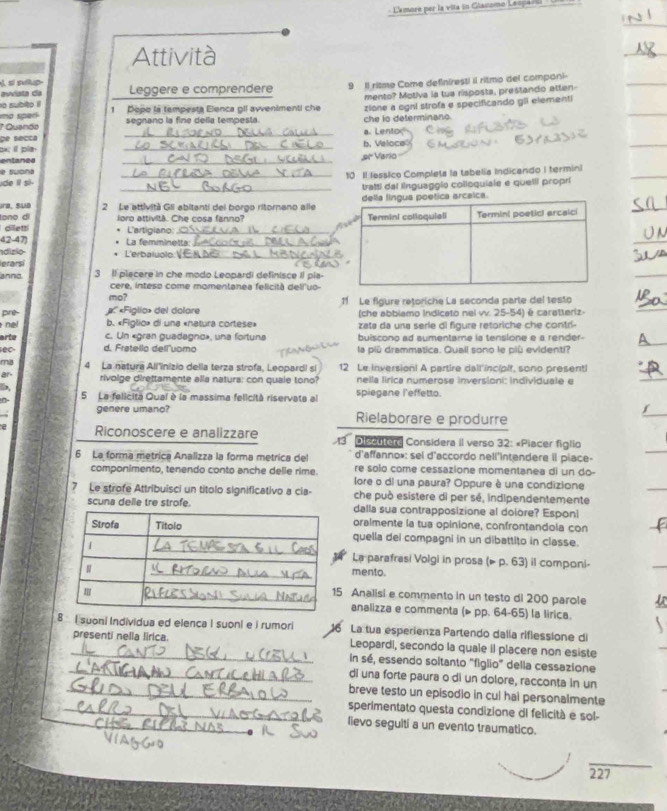 L'amore per la vita in Giacomo Leopardi
Attività
Leggere e comprendere
1 Dopo la tempesta Elenca gli avvenimenti che
segnano la fine della tempesta.
IL RITORNO DELLA CALMA
LO SCHIARIRSI DEL CIELO
IL CANTO DEGLI UCCELLI
LA RIPRESA DELLA VITA
NEL BORGO
2 Le attività Gli abitanti del borgo ritornano alle
loro attività. Che cosa fanno?
• L'artigiano: OSSERVA IL CIELO
• La femminetta: RACCOGLIE DELL'ACQUA
• L'erbaiuolo:
3 Il piacere In che modo Leopardi definisce il pia-
cere, inteso come momentanea felicità dell'uo-
mo?
a. «Figlio» del dolore
b. «Figlio» di una «natura cortese»
c. Un «gran guadagno», una fortuna
d. Fratello dell'uomo
4 La natura All'inizio della terza strofa, Leopardi si
rivolge direttamente alla natura: con quale tono?
5 La felicità Qual è la massima felicità riservata al
genere umano?
Riconoscere e analizzare
6 La forma metrica Analizza la forma metrica del
componimento, tenendo conto anche delle rime.
7 Le strofe Attribuisci un titolo significativo a cia-
scuna delle tre strofe.
Strofa Titolo
I LA TEMPESTA E IL
II IL RITORNO ALLA VITA
III RIFLESSIONI SULLA NATURA
8 I suoni Individua ed elenca i suoni e i rumori
presenti nella lirica.
IL CANTO DEGLI UCCELLI
L'ARTIGIANO
GRIDO DELL'ERBAIOLO
CARRO DEL VIAGGIATORE
CHE RIPRENDE IL SUO
VIAGGIO
9 Il ritmo Come definiresti il ritmo del componi-
mento? Motiva la tua risposta, prestando atten-
zione a ogni strofa e specificando gli elementi
che lo determinano.
a. Lento
b. Veloce
c. Vario
10 Il lessico Completa la tabella indicando i termini
tratti dal linguaggio colloquiale e quelli propri
della lingua poetica arcaica.
Termini colloquiali Termini poetici arcaici
11 Le figure retoriche La seconda parte del testo
(che abbiamo indicato nei vv. 25-54) è caratteriz-
zata da una serie di figure retoriche che contri-
buiscono ad aumentarne la tensione e a render-
la più drammatica. Quali sono le più evidenti?
12 Le inversioni A partire dall'incipit, sono presenti
nella lirica numerose inversioni: individuale e
spiegane l'effetto.
Rielaborare e produrre
13 Discutere Considera il verso 32: «Piacer figlio
d'affanno»: sei d'accordo nell'intendere il piace-
re solo come cessazione momentanea di un do-
lore o di una paura? Oppure è una condizione
che può esistere di per sé, indipendentemente
dalla sua contrapposizione al dolore? Esponi
oralmente la tua opinione, confrontandola con
quella dei compagni in un dibattito in classe.
14 La parafrasi Volgi in prosa (▸ p. 63) il componi-
mento.
15 Analisi e commento in un testo di 200 parole
analizza e commenta (▸ pp. 64-65) la lirica.
16 La tua esperienza Partendo dalla riflessione di
Leopardi, secondo la quale il piacere non esiste
in sé, essendo soltanto "figlio" della cessazione
di una forte paura o di un dolore, racconta in un
breve testo un episodio in cui hai personalmente
sperimentato questa condizione di felicità e sol-
lievo seguiti a un evento traumatico.
227